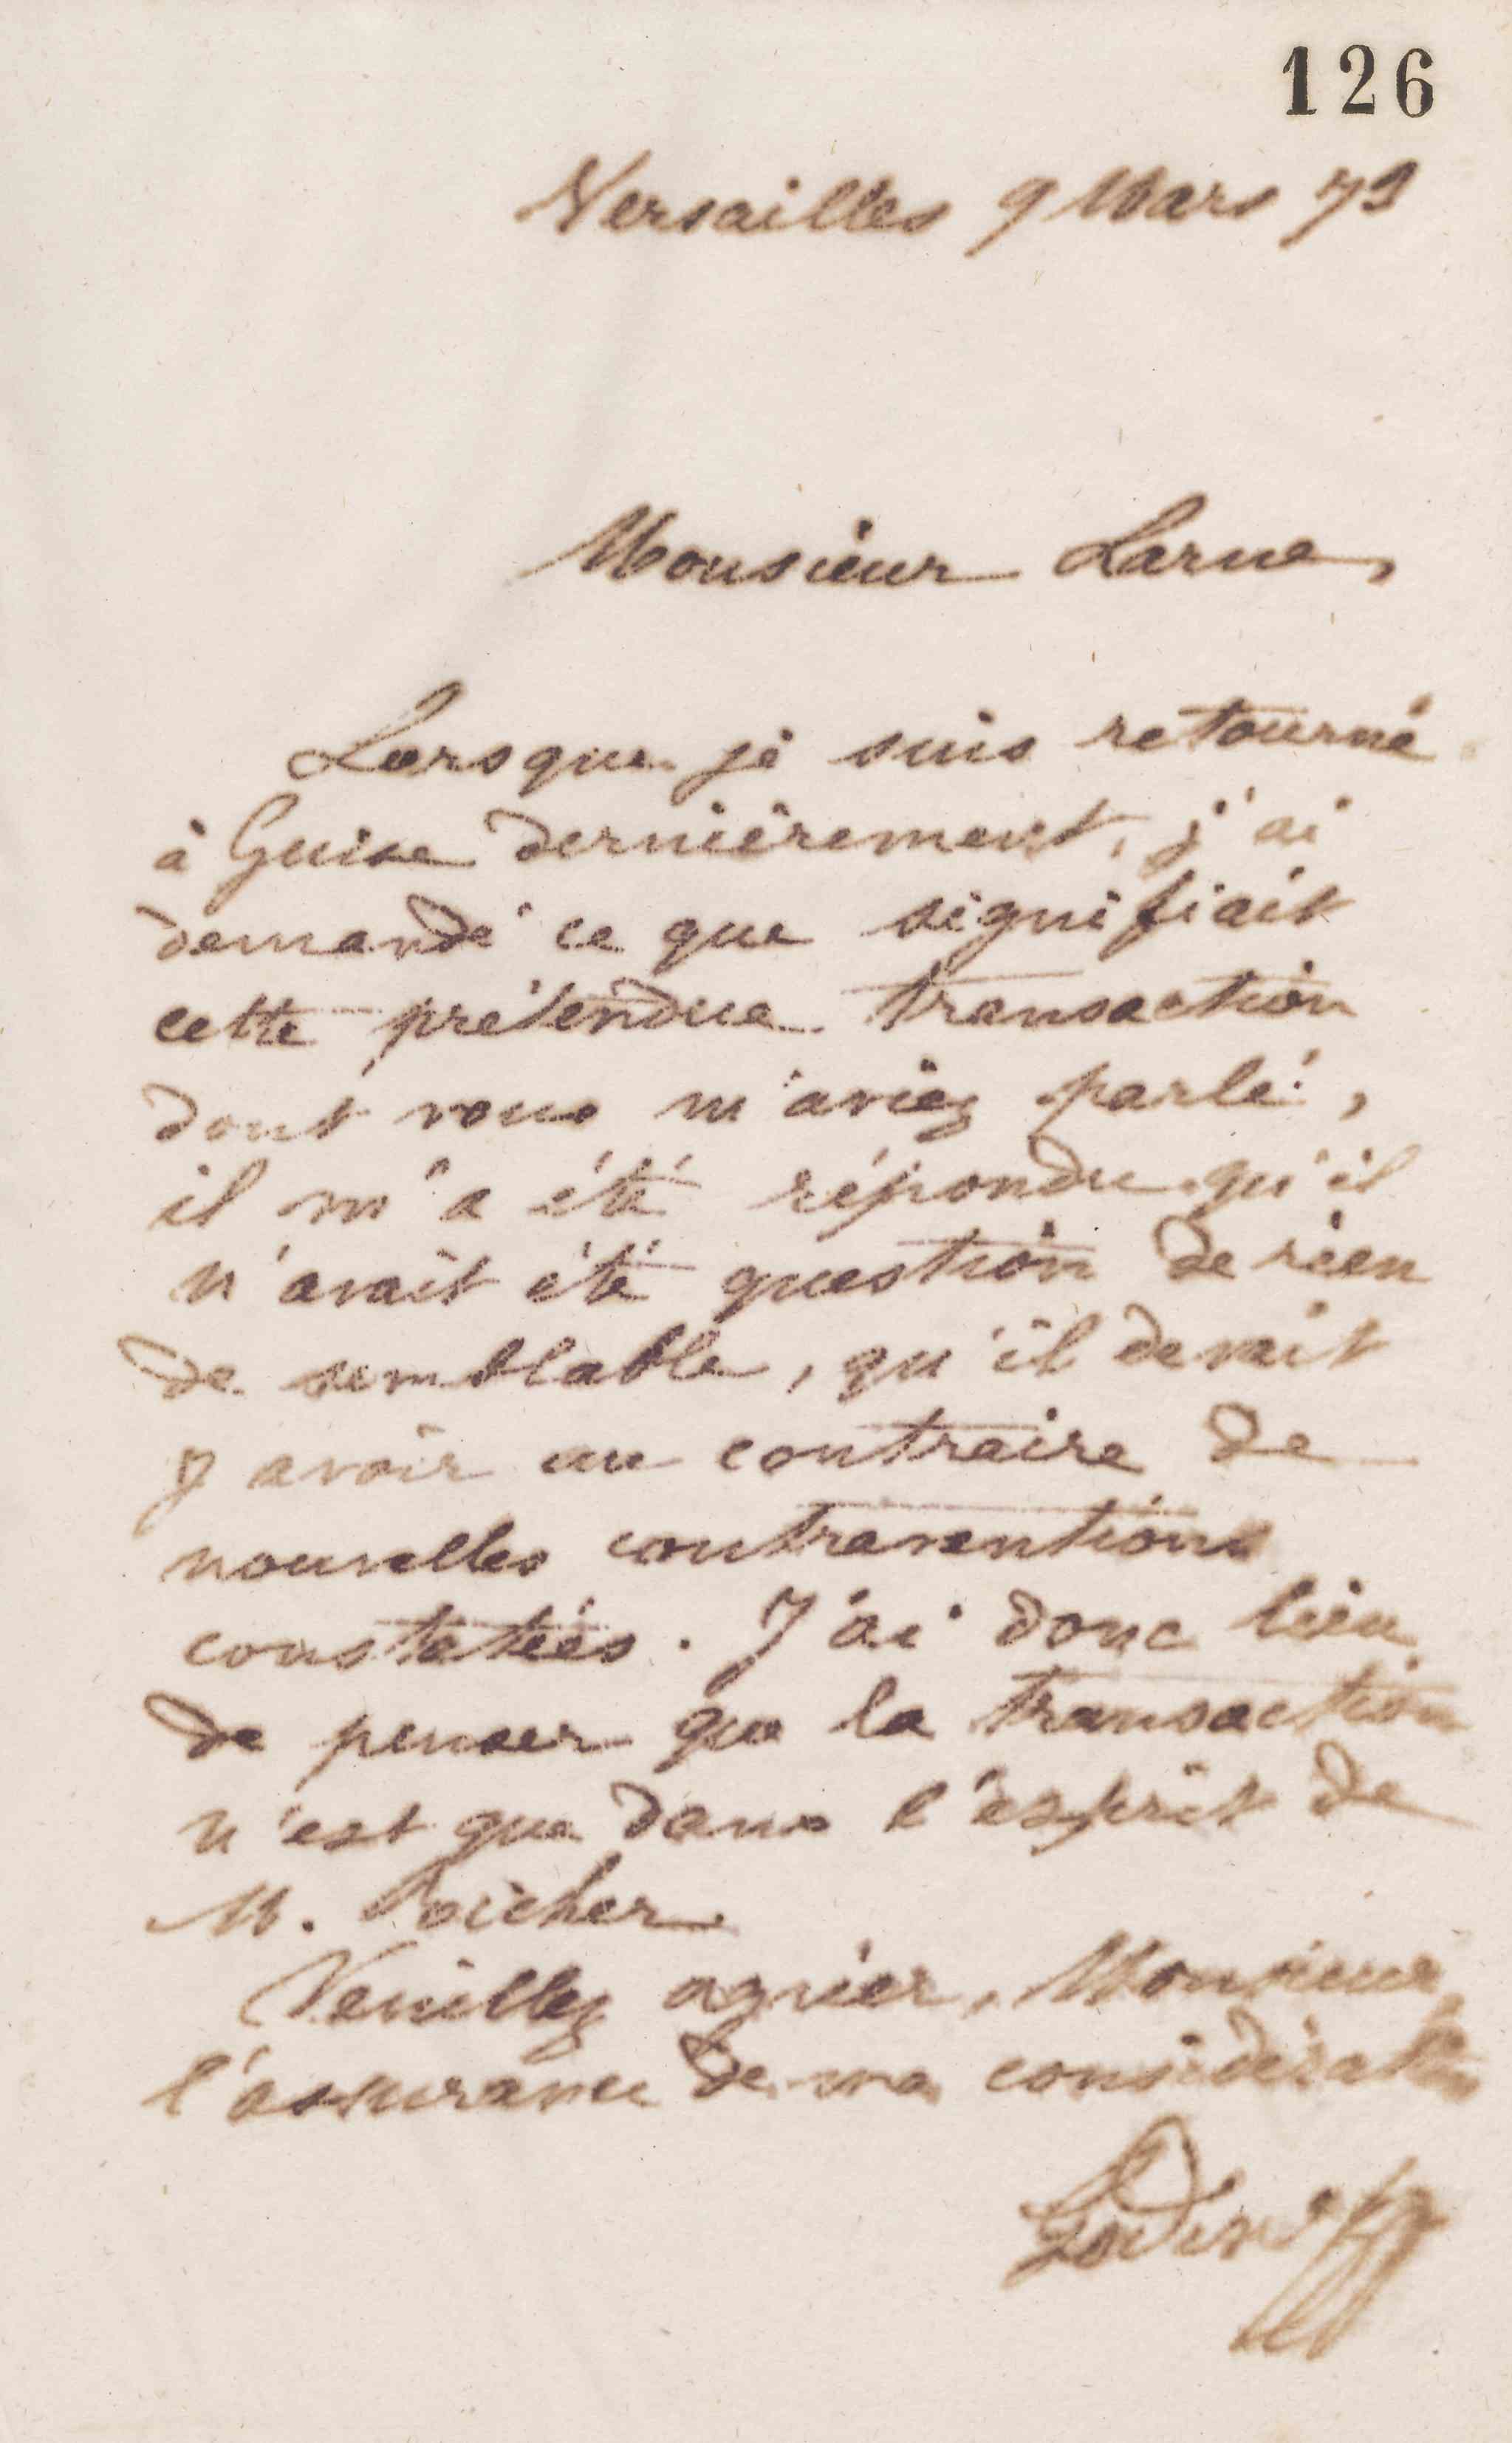 126
Versailles 9 Mars 73
Monsieur Larue,
Lorsque je suis retourné
à Guise dernièrement, j'ai
demandé ce que signifiait
cette prétendue transaction
dont vous m'aviez parlé,
il m'a été répondu qu'il
n'avait été question de rien
de semblable, qu'il devait
y avoir au contraire de
nouvelles contraventions
constatées. J'ai donc lieu
de penser que la transaction
n'est que dans l'esprit de
M.
Veuillez agréer, Monsieur,
l'assurance de ma considération
Godin